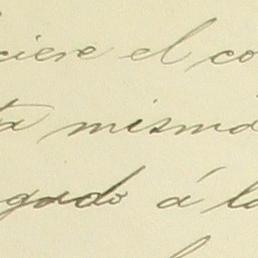 ciere el co
ta misma
gado á la